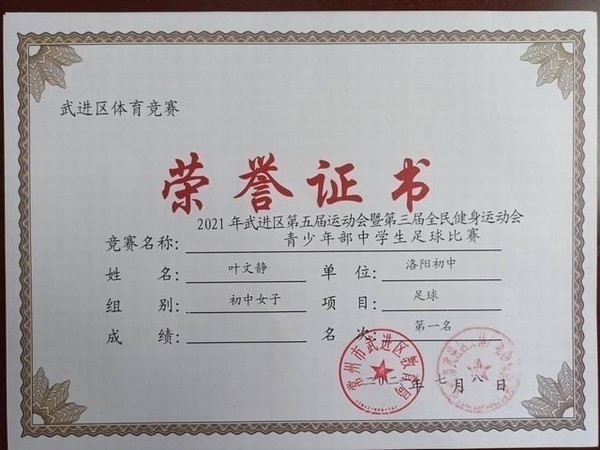 武进区体育竞赛
荣誉证书
2021年武进区第五届运动会暨第三届全民健身运动会
竞赛名称： 青少年部中学生足球比赛
姓名： 叶文静 单位： 洛阳初中
组别： 初中女子 项目： 足球
成绩： 名次： 第一名
常州市武进区教育局
二〇二一年七月八日